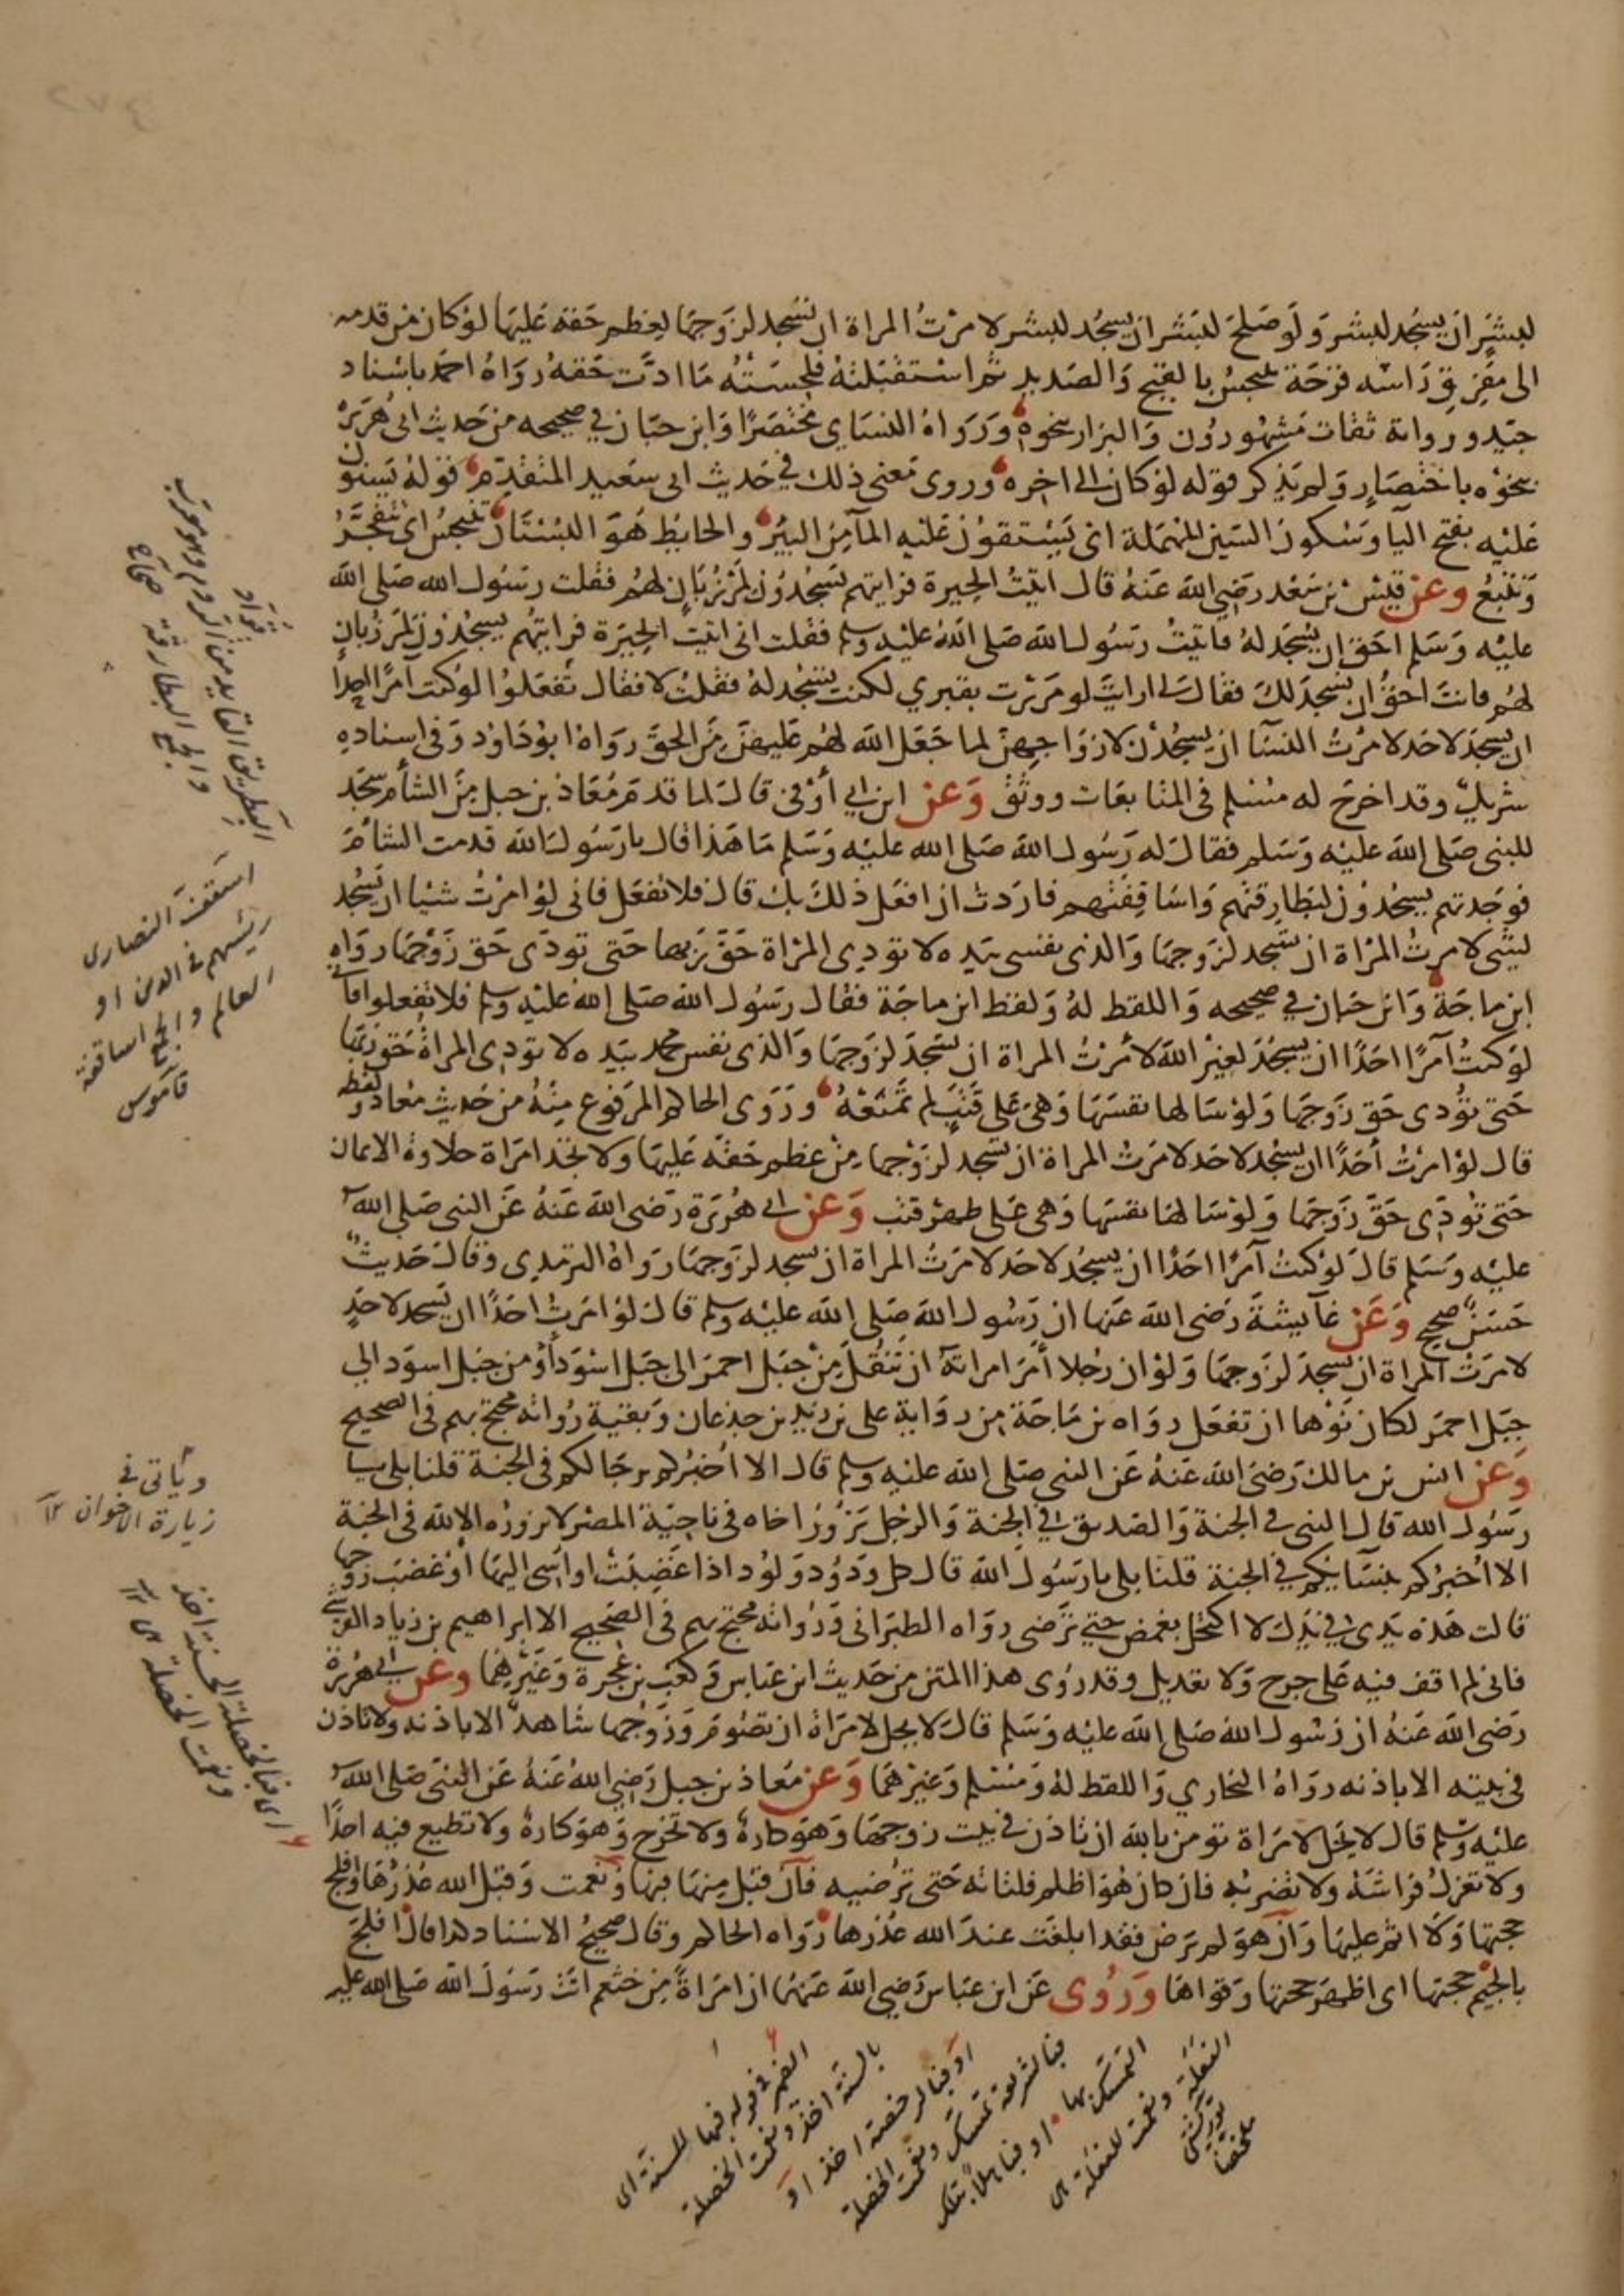 لبشر ان يسجد لبشر ولو صلح لبشر ان يسجد لبشر لامرت المراة ان تسجد لزوجها لعظم حقه عليها لو كان من قدمه
الى مفرق راسه قرحة تنبجس بالقيح والصديد ثم استقبلته فلحسته ما ادت حقه رواه احمد باسناد
جيد ورواته ثقات مشهورون والبزار بنحوه ورواه النساي مختصرا وابن حبان في صحيحه من حديث ابى هريرة
بنحوه باختصار ولم يذكر قوله لو كان الى اخره وروى معنى ذلك في حديث ابى سعيد المتقدم قوله يسنون
عليه بفتح اليا وسكون السين المهملة اى يستقون عليه المآ من البير والحايط هو البستان تنبجس اى تتفجر
وتنبع وعن قيس بن سعد رضي الله عنه قال اتيت الحيرة فرايتهم يسجدون لمرزبان لهم فقلت رسول الله صلى الله
عليه وسلم احق ان يسجد له فاتيت رسول الله صلى الله عليه وسلم فقلت انى اتيت الحيرة فرايتهم يسجدون لمرزبان
لهم فانت احق ان يسجد لك فقال لى ارايت لو مررت بقبري لكنت تسجد له فقلت لا فقال تفعلوا لو كنت آمرا احدا
ان يسجد لاحد لامرت النسا ان يسجدن لازواجهن لما جعل الله لهم عليهن من الحق رواه ابو داود وفى اسناده
شريك وقد اخرج له مسلم فى المتابعات ووثق وعن ابن ابي أوفى قال لما قدم معاذ بن جبل من الشام سجد
للنبى صلى الله عليه وسلم فقال له رسول الله صلى الله عليه وسلم ما هذا قال يا رسول الله قدمت الشام
فوجدتهم يسجدون لبطارقتهم واساقفتهم فاردت ان افعل ذلك بك قال فلا تفعل فانى لو امرت شيا ان يسجد
لشى لامرت المراة ان تسجد لزوجها والذى نفسى بيده لا تودى المراة حق ربها حتى تودى حق زوجها رواه
ابن ماجة وابن حبان في صحيحه واللفظ له ولفظ ابن ماجة فقال رسول الله صلى الله عليه وسلم فلا تفعلوا فانى
لو كنت آمرا احدا ان يسجد لغير الله لأمرت المراة ان تسجد لزوجها والذى نفس محمد بيده لا تودى المراة حق ربها
حتى تؤدى حق زوجها ولو سالها نفسها وهى على قتب لم تمنعه وروى الحاكم المرفوع منه من حديث معاذ ولفظه
قال لو امرت أحدا ان يسجد لاحد لامرت المراة ان تسجد لزوجها من عظم حقه عليها ولا تجد امراة حلاوة الايمان
حتى تؤدى حق زوجها ولو سالها نفسها وهى على ظهر قتب وعن ابى هريرة رضى الله عنه عن النبى صلى الله
عليه وسلم قال لو كنت آمرا احدا ان يسجد لاحد لامرت المراة ان تسجد لزوجها رواه الترمدى وقال حديث
حسن صحيح وعن عآيشة رضى الله عنها ان رسول الله صلى الله عليه وسلم قال لو امرت احدا ان يسجد لاحد
لامرت المراة ان تسجد لزوجها ولو ان رجلا أمر امراته ان تنقل من جبل احمر الى جبل اسود أو من جبل اسود الى
جبل احمر لكان نولها ان تفعل رواه بن ماجة من رواية على بن زيد بن جدعان وبقية رواته محتج بهم فى الصحيح
وعن انس بن مالك رضى الله عنه عن النبى صلى الله عليه وسلم قال الا اخبركم برجالكم فى الجنة قلنا بلى يا
رسول الله قال النبى فى الجنة والصديق فى الجنة والرجل يزور اخاه فى ناحية المصر لا يزوره الا لله فى الجنة
الا اخبركم بنسايكم في الجنة قلنا بلى يا رسول الله قال كل ودود ولود اذا غضبت او اسى اليها أو غضب زوجها
قالت هذه يدى فى يدك لا اكتحل بغمض حتى ترضى رواه الطبرانى ورواته محتج بهم فى الصحيح الا ابراهيم بن زياد القرشى
فانى لم اقف فيه على جرح ولا تعديل وقد روى هذا المتن من حديث ابن عباس وكعب بن عجرة وغيرهما وعن ابى هريرة
رضى الله عنه ان رسول الله صلى الله عليه وسلم قال لا يحل لامراة ان تصوم وزوجها شاهد الا باذنه ولا تاذن
فى بيته الا باذنه رواه البخاري واللفظ له ومسلم وغيرهما وعن معاذ بن جبل رضي الله عنه عن النبى صلى الله
عليه وسلم قال لا يحل لامراة تومن بالله ان تاذن في بيت زوجها وهو كاره ولا تخرج وهو كاره ولا تطيع فيه احدا
ولا تعزل فراشه ولا تضربه فان كان هو اظلم فلتاته حتى ترضيه فان قبل منها فبها ونعمت وقبل الله عذرها وافلج
حجتها ولا اثم عليها وان هو لم يرض فقد ابلغت عند الله عذرها رواه الحاكم وقال صحيح الاسناد كذا قال افلج
بالجيم حجتها اى اظهر حجتها وقواها وروى عن ابن عباس رضي الله عنهما ان امراة من خثعم اتت رسول الله صلى الله عليه
اسقف النصارى
رئيسهم فى الدين او
العالم والجمع اساقفة
قاموس
وياتى فى
زيارة الاخوان
اى فبالخصلة الحسنة اخذ
ونعمت الخصلة
الضمير فى قوله فبها للسنة اى
بالسنة اخذ ونعمت الخصلة
او فبالرخصة اخذ او
فبالشريعة تمسك ونعمت الخصلة